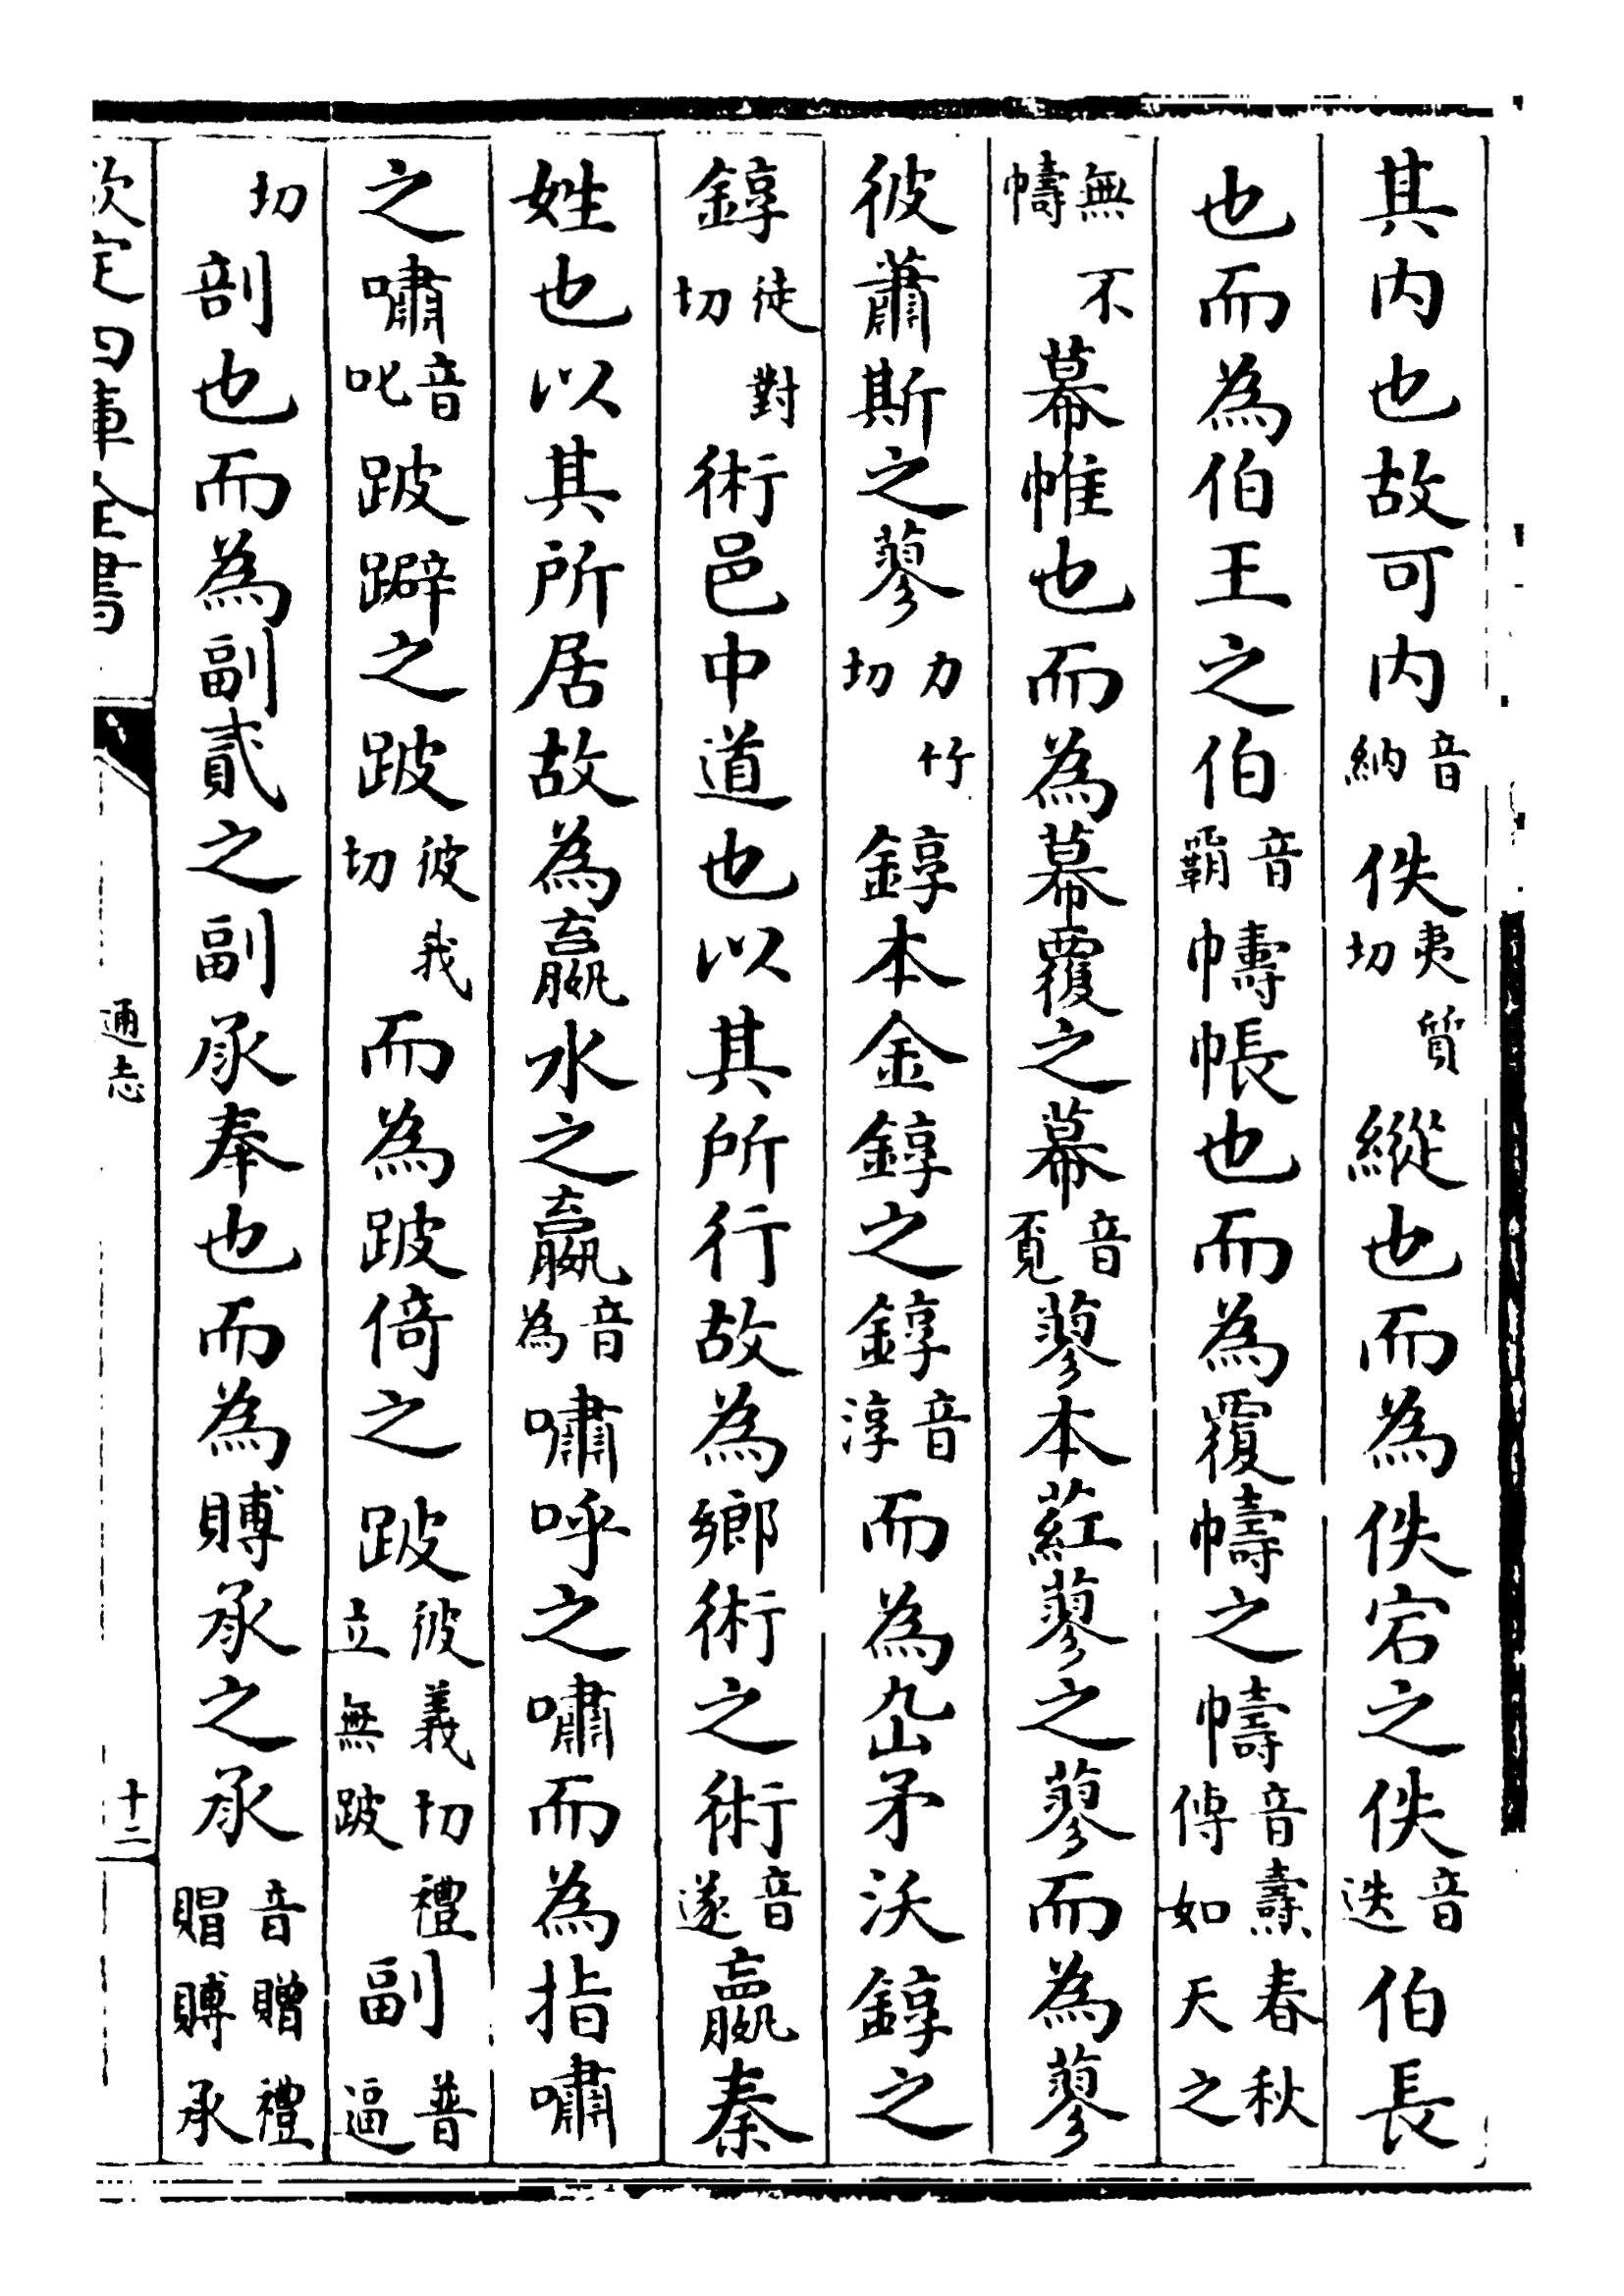 其内也故可内音納佚夷質切縱也而為佚宕之佚音迭伯長
也而為伯王之伯音覇幬帳也而為覆幬之幬音燾春秋傳如天之
無不幬幕帷也而為幕覆之幕音覓蓼本葒蓼之蓼而為蓼
彼蕭斯之蓼力竹切錞本金錞之錞音淳而為厹矛沃錞之
錞徒對切術邑中道也以其所行故為鄉術之術音遂嬴秦
姓也以其所居故為嬴水之嬴音為嘯呼之嘯而為指嘯
之嘯音叱跛躃之跛彼我切而為跛倚之跛彼義切禮立無跛副普逼
切剖也而為副貳之副承奉也而為賻承之承音贈禮賵賻承
欽定四庫全書
通志
十二